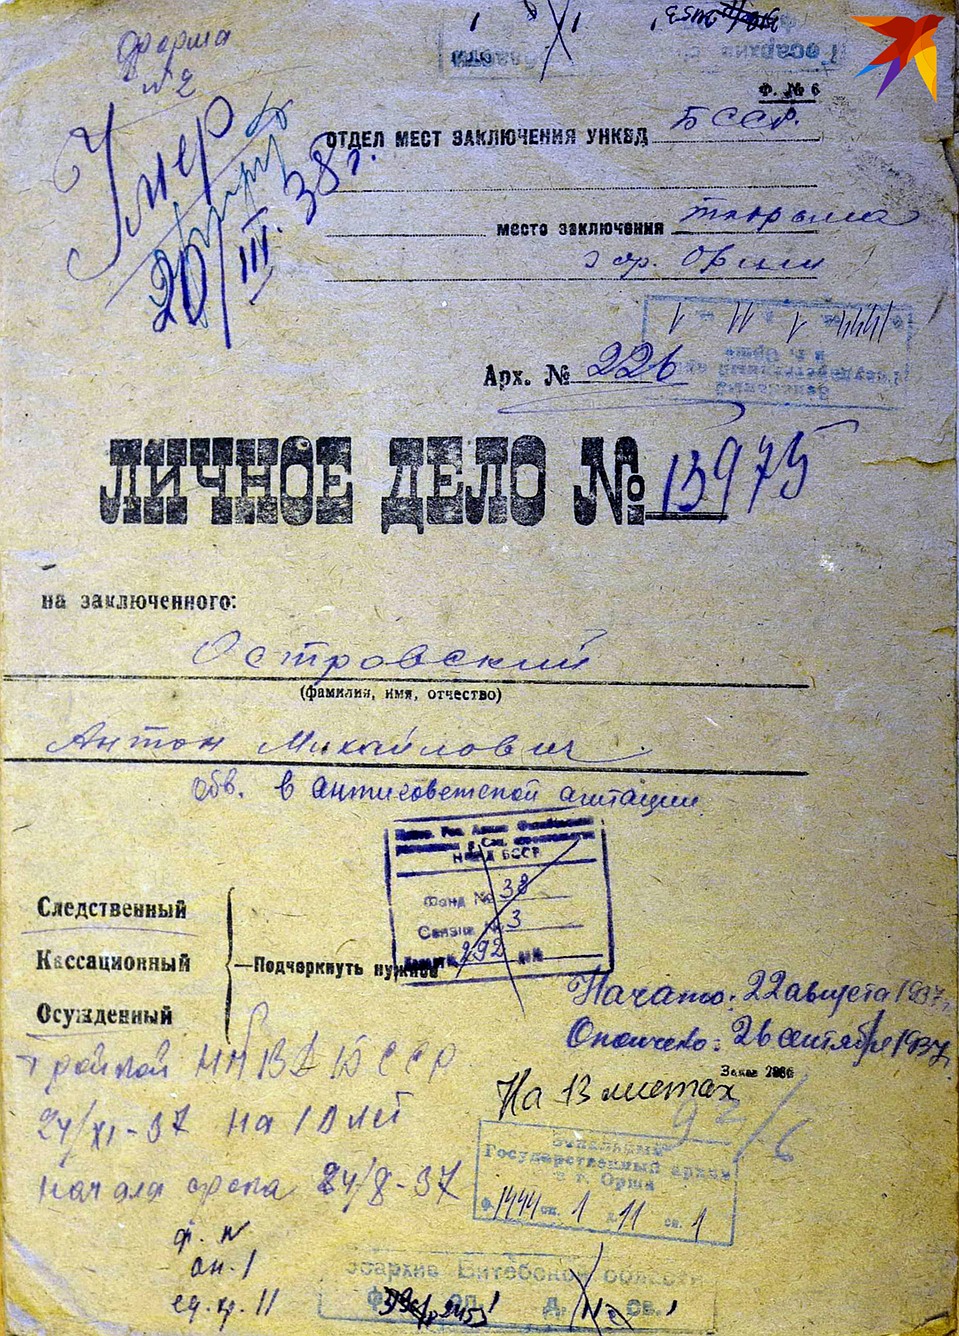 форма
№ 2
Умер
20/III. 38 г.
Ф. № 6
ОТДЕЛ МЕСТ ЗАКЛЮЧЕНИЯ УНКВД БССР.
место заключения тюрьма
гор. Орши
Арх. № 226
ЛИЧНОЕ ДЕЛО № 13975
на заключенного:
Островский
(фамилия, имя, отчество)
Антон Михайлович
Обв. в антисоветской агитации
НКВД БССР
Фонд № 38
Связка № 3
292
Следственный
Кассационный
Осужденный
—Подчеркнуть нужное
Начато: 22 августа 1937 г.
Окончено: 26 сентября 1937 г.
Заказ
На 13 листах
Тройкой НКВД БССР
24/XI-37 на 10 лет
начало срока 24/8-37
Зональный
Государственный архив
в г. Орша
ф. 1444 оп. 1 д. 11 св. 1
ф. №
оп. 1
ед. хр. 11
Госархив Витебской области
ф. оп. 1 д. 11 св. 1